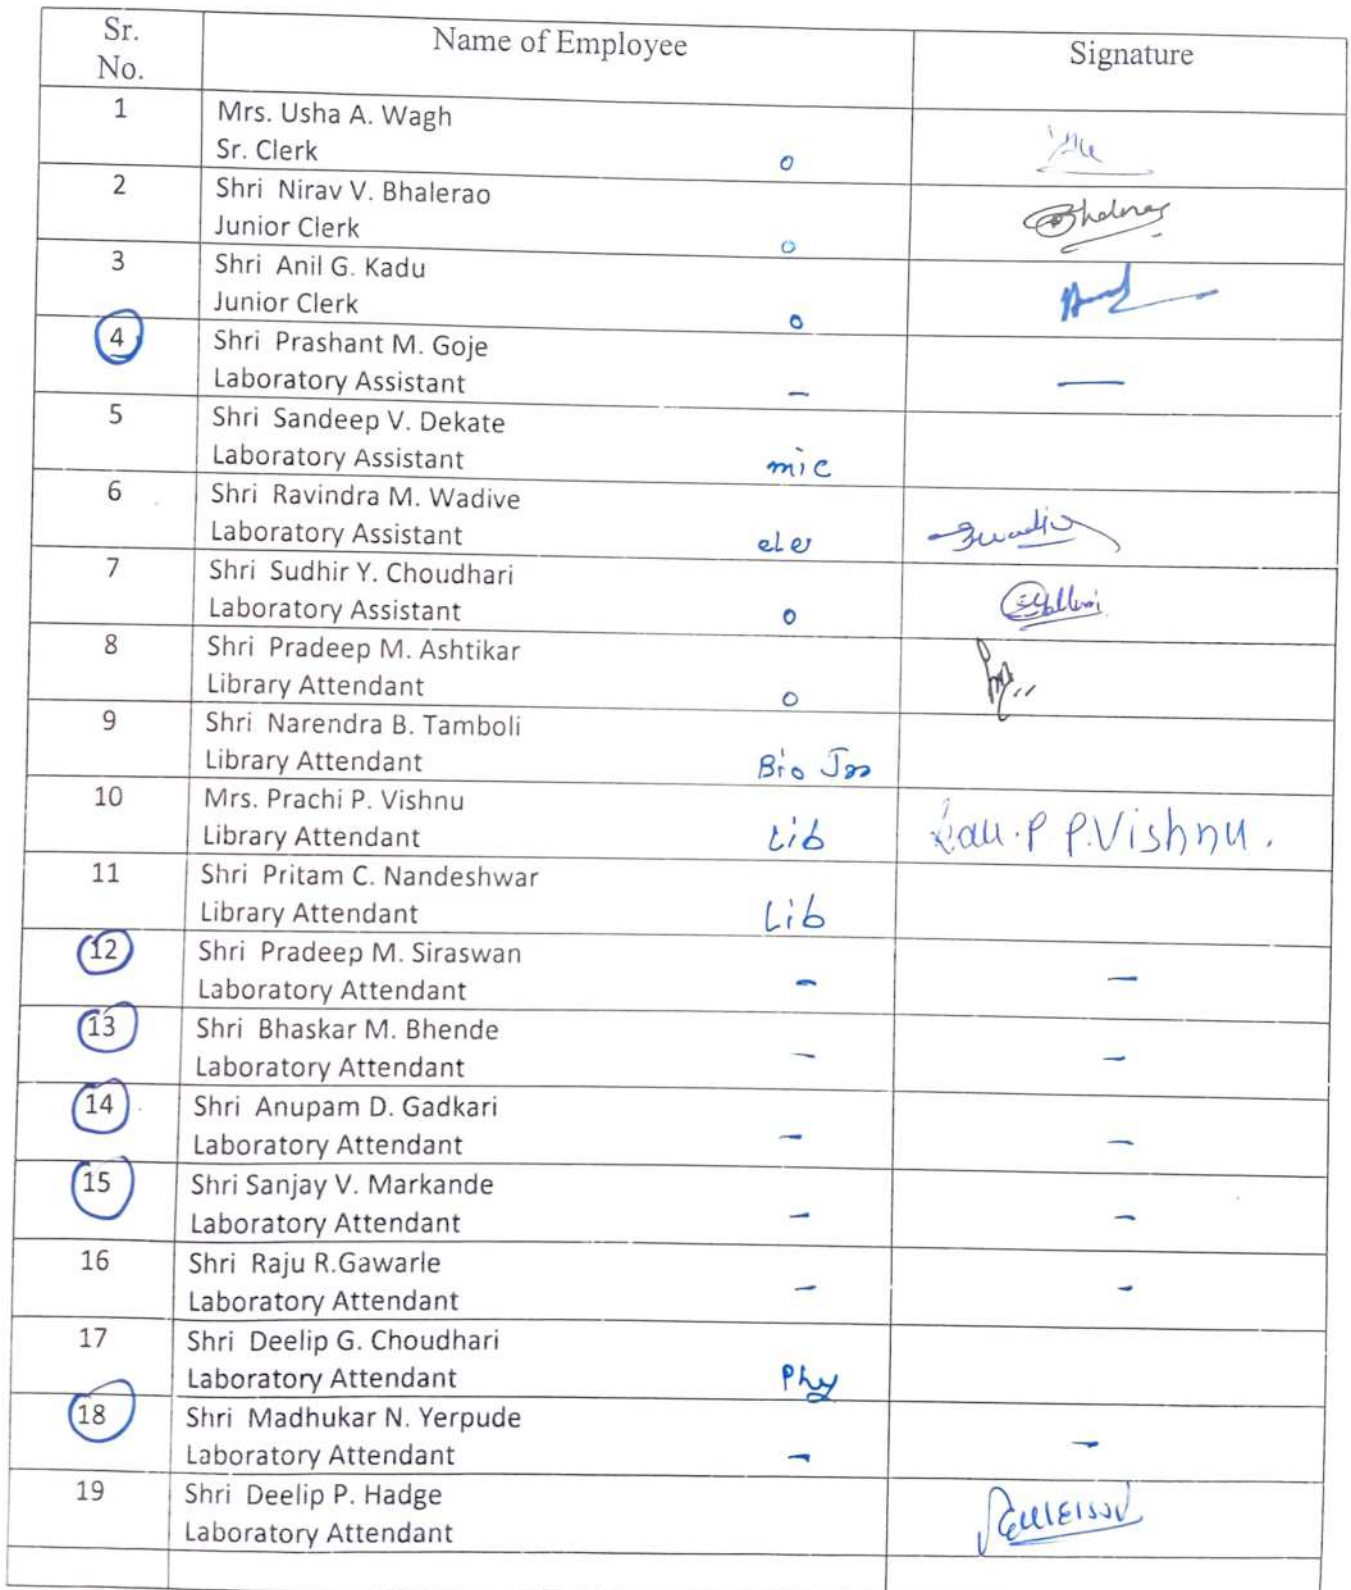 Sr.
No.
Name of Employee
Signature
1
Mrs. Usha A. Wagh
Sr. Clerk
o
2
Shri Nirav V. Bhalerao
Junior Clerk
o
3
Shri Anil G. Kadu
Junior Clerk
o
4
Shri Prashant M. Goje
Laboratory Assistant
-
—
5
Shri Sandeep V. Dekate
Laboratory Assistant
mic
6
Shri Ravindra M. Wadive
Laboratory Assistant
ele
7
Shri Sudhir Y. Choudhari
Laboratory Assistant
o
8
Shri Pradeep M. Ashtikar
Library Attendant
o
9
Shri Narendra B. Tamboli
Library Attendant
Bio
10
Mrs. Prachi P. Vishnu
Library Attendant
Lib
P P.Vishnu.
11
Shri Pritam C. Nandeshwar
Library Attendant
Lib
12
Shri Pradeep M. Siraswan
Laboratory Attendant
-
-
13
Shri Bhaskar M. Bhende
Laboratory Attendant
-
-
14
Shri Anupam D. Gadkari
Laboratory Attendant
-
-
15
Shri Sanjay V. Markande
Laboratory Attendant
-
-
16
Shri Raju R.Gawarle
Laboratory Attendant
-
-
17
Shri Deelip G. Choudhari
Laboratory Attendant
Phy
18
Shri Madhukar N. Yerpude
Laboratory Attendant
-
-
19
Shri Deelip P. Hadge
Laboratory Attendant